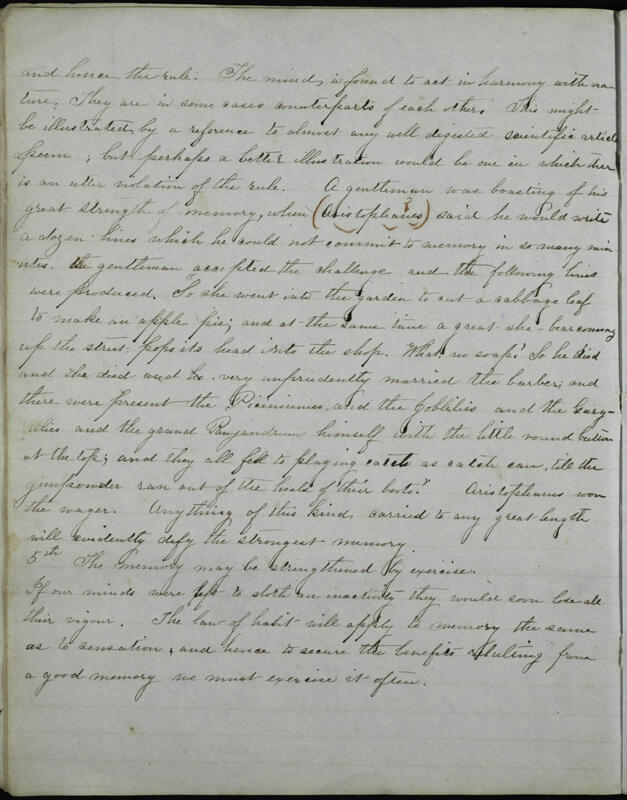 and hence the rule. The mind, is found to act in harmony with na-
ture. They are in some cases counterparts of each other. This might
be illustrated by a reference to almost any well digested scientific article
poem, but perhaps a better illustration would be one in which there
is an utter violation of the rule. A gentleman was boasting of his
great strength of memory, when (Aristophanes) said he would write
a dozen lines which he could not commit to memory in so many min
utes. the gentleman accepted the challenge and the following lines
were produced. "So she went into the garden to cut a cabbage leaf
to make an apple pie; and at the same time a great she-bear coming
up the street pops its head into the shop. What no soap! So he died
and she died and he very imprudently married the barber; and
there were present the Picininnies, and the Joblilies and the Gary-
ulies and the grand Panjandrum himself with the little round button
at the top; and they all fell to playing catch as catch can, till the
gunpowder ran out of the heels of their boots." Aristophanus won
the wager. Anything of this kind, carried to any great length
will evidently defy the strongest memory.
5th The memory may be strengthened by exercise.
If our minds were left to sloth an inactivity they would soon lose all
their vigour. The law of habit will apply to memory the same
as to sensation, and hence to secure the benefits resulting from
a good memory we must exercise it often.